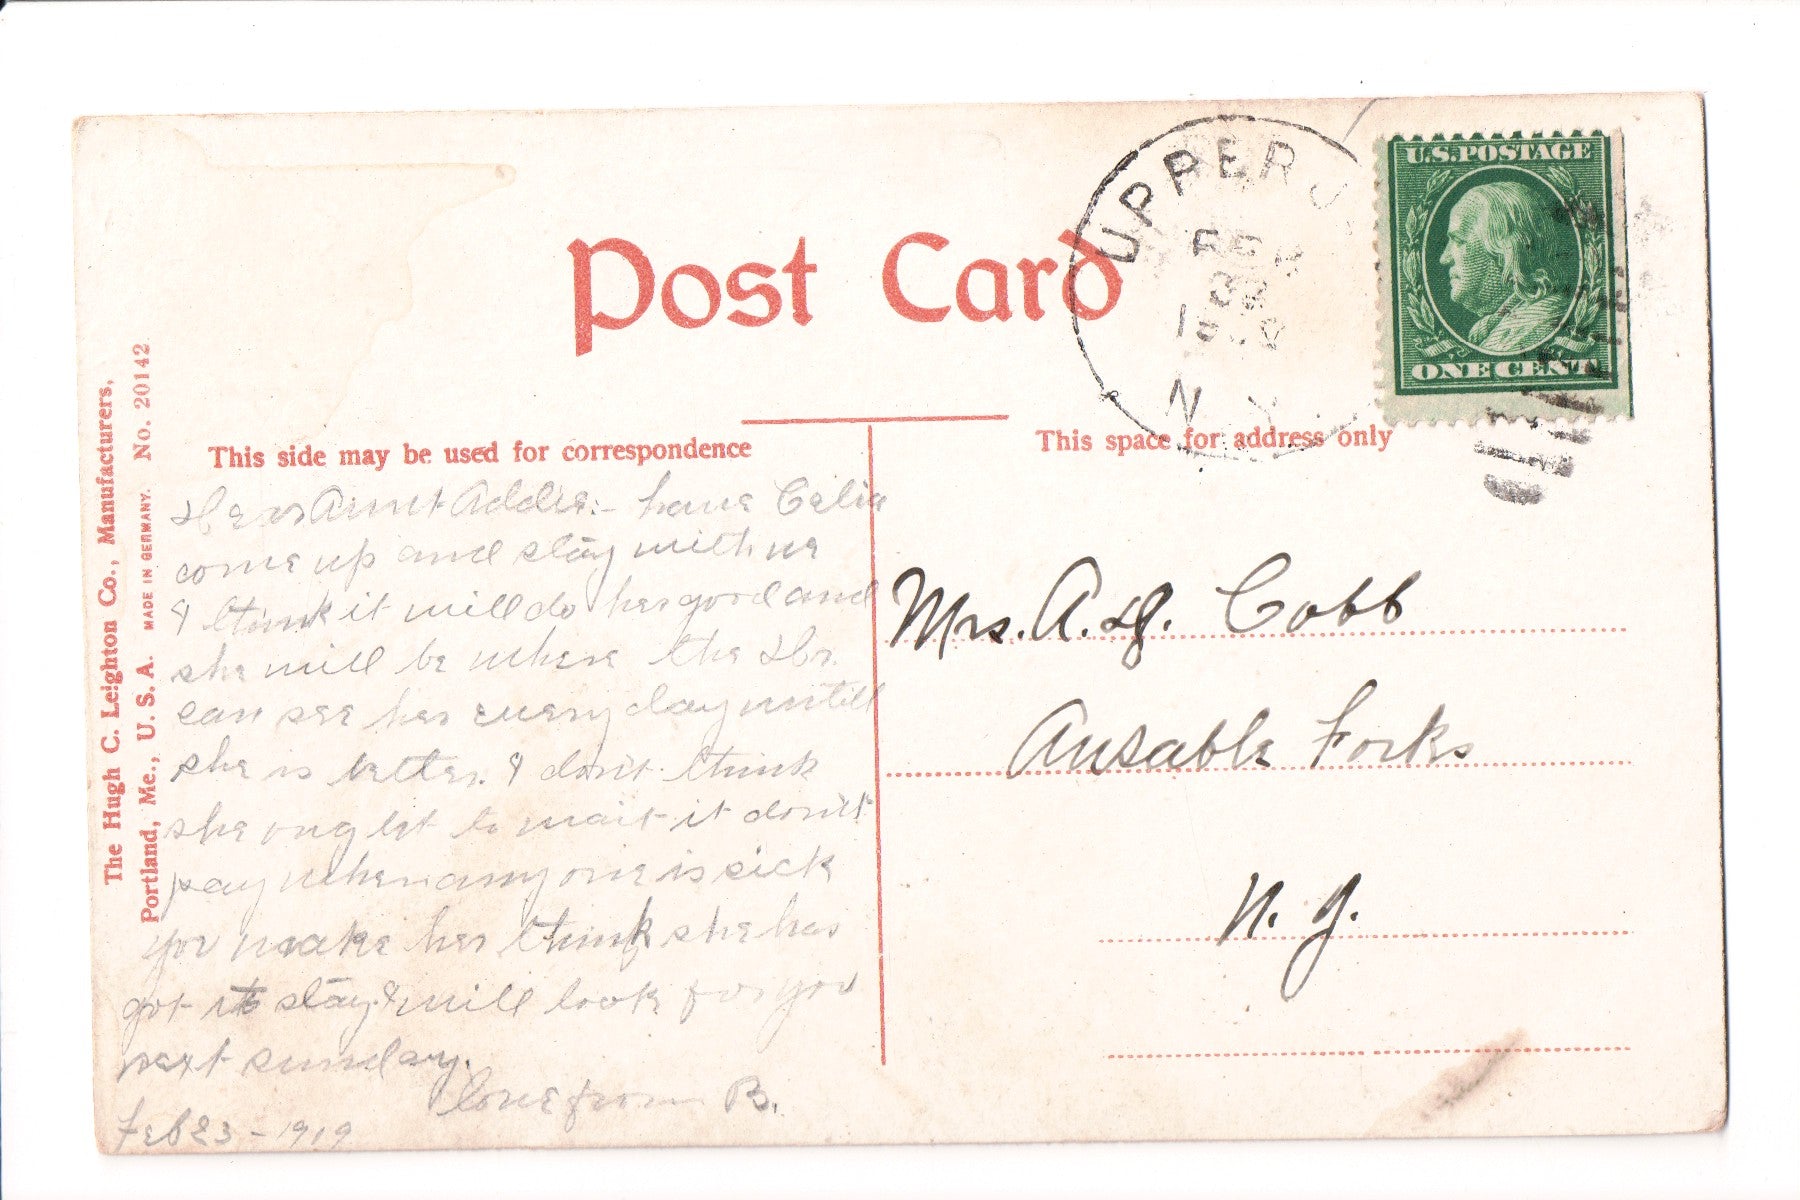 Post Card
UPPER J
FEB
N Y
U.S. POSTAGE
ONE CENT
The Hugh C. Leighton Co., Manufacturers,
Portland, Me., U. S. A. MADE IN GERMANY. No. 20142
This side may be used for correspondence
This space for address only
Dear Aunt Addie:- have Celia
come up and stay with me
I think it will do her good and
she will be where the Dr.
can see her every day untill
she is better. I don't think
she ought to wait it don't
pay when any one is sick
you make her think she has
got to stay. I will look for you
next sunday.
love from B.
Feb 23-1919
Mrs. A. D. Cobb
Ausable Forks
N. Y.